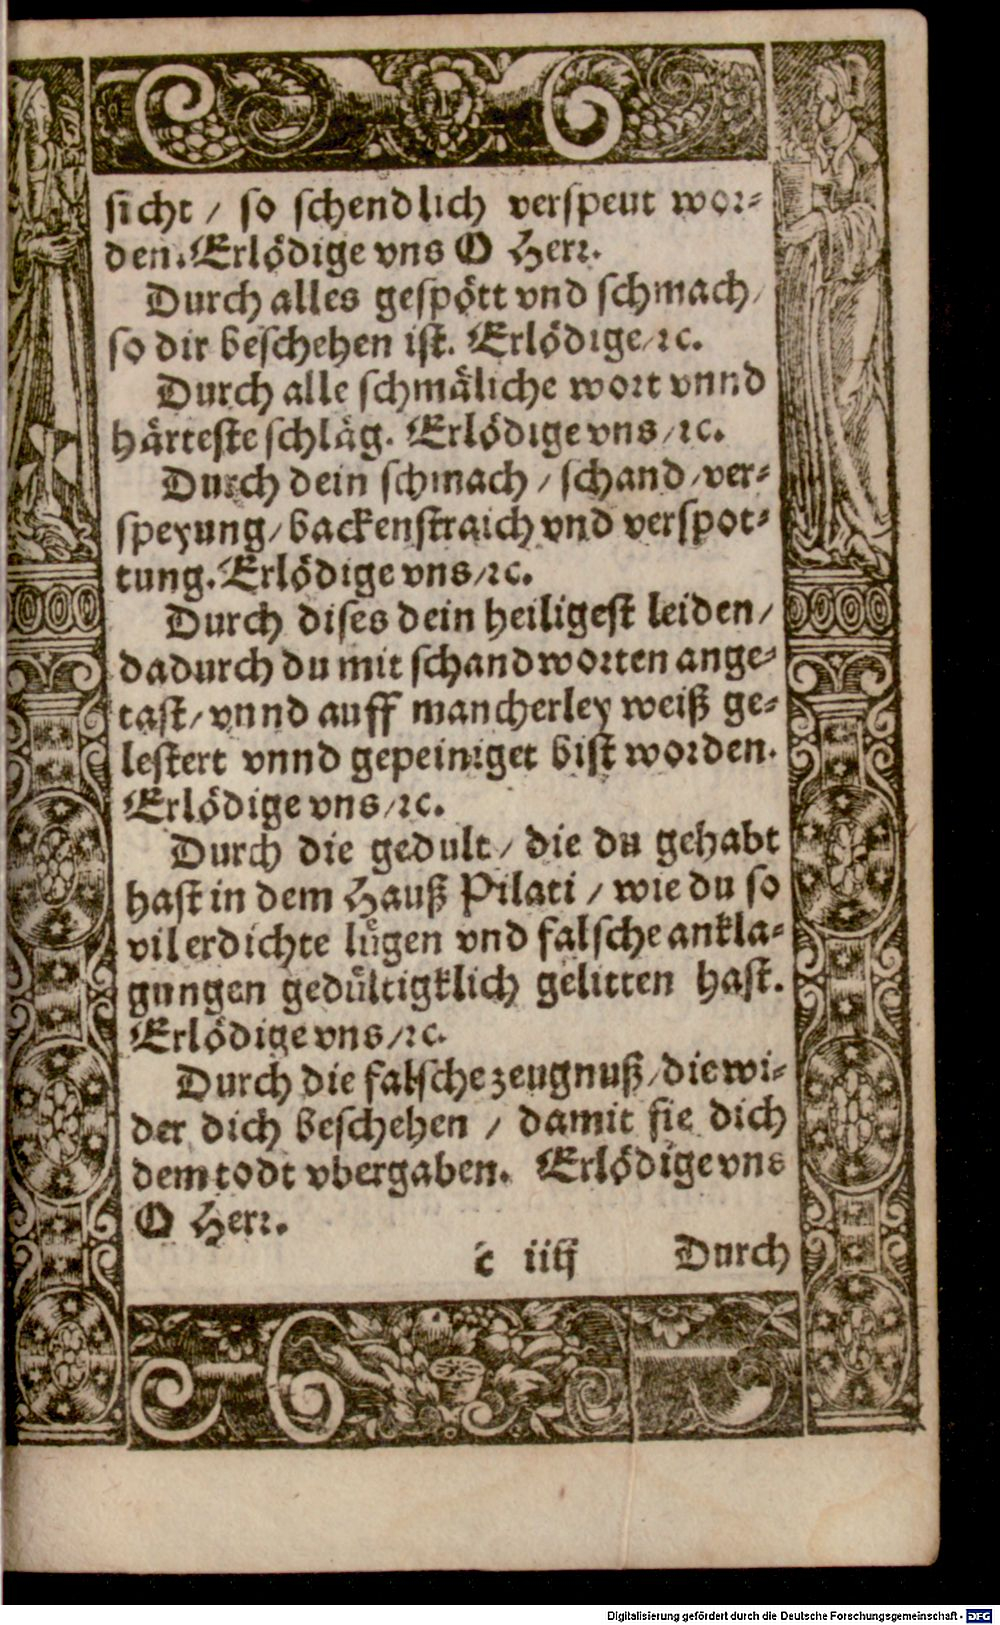 sicht / so schendlich verspeut wor-
den. Erlödige vns O Herr.
Durch alles gespött vnd schmach /
so dir beschehen ist. Erlödige / ꝛc.
Durch alle schmäliche wort vnnd
härteste schläg. Erlödige vns / ꝛc.
Durch dein schmach / schand / ver-
speyung / backenstraich vnd verspot-
tung. Erlödige vns / ꝛc.
Durch dises dein heiligest leiden /
dadurch du mit schandworten ange-
tast / vnnd auff mancherley weiß ge-
lestert vnnd gepeiniget bist worden.
Erlödige vns / ꝛc.
Durch die gedult / die du gehabt
hast in dem Hauß Pilati / wie du so
vil erdichte lügen vnd falsche ankla-
gungen gedültigklich gelitten hast.
Erlödige vns / ꝛc.
Durch die falsche zeugnuß / die wi-
der dich beschehen / damit sie dich
dem todt vbergaben. Erlödige vns
O Herr.
c iiij Durch
Digitalisierung gefördert durch die Deutsche Forschungsgemeinschaft - DFG